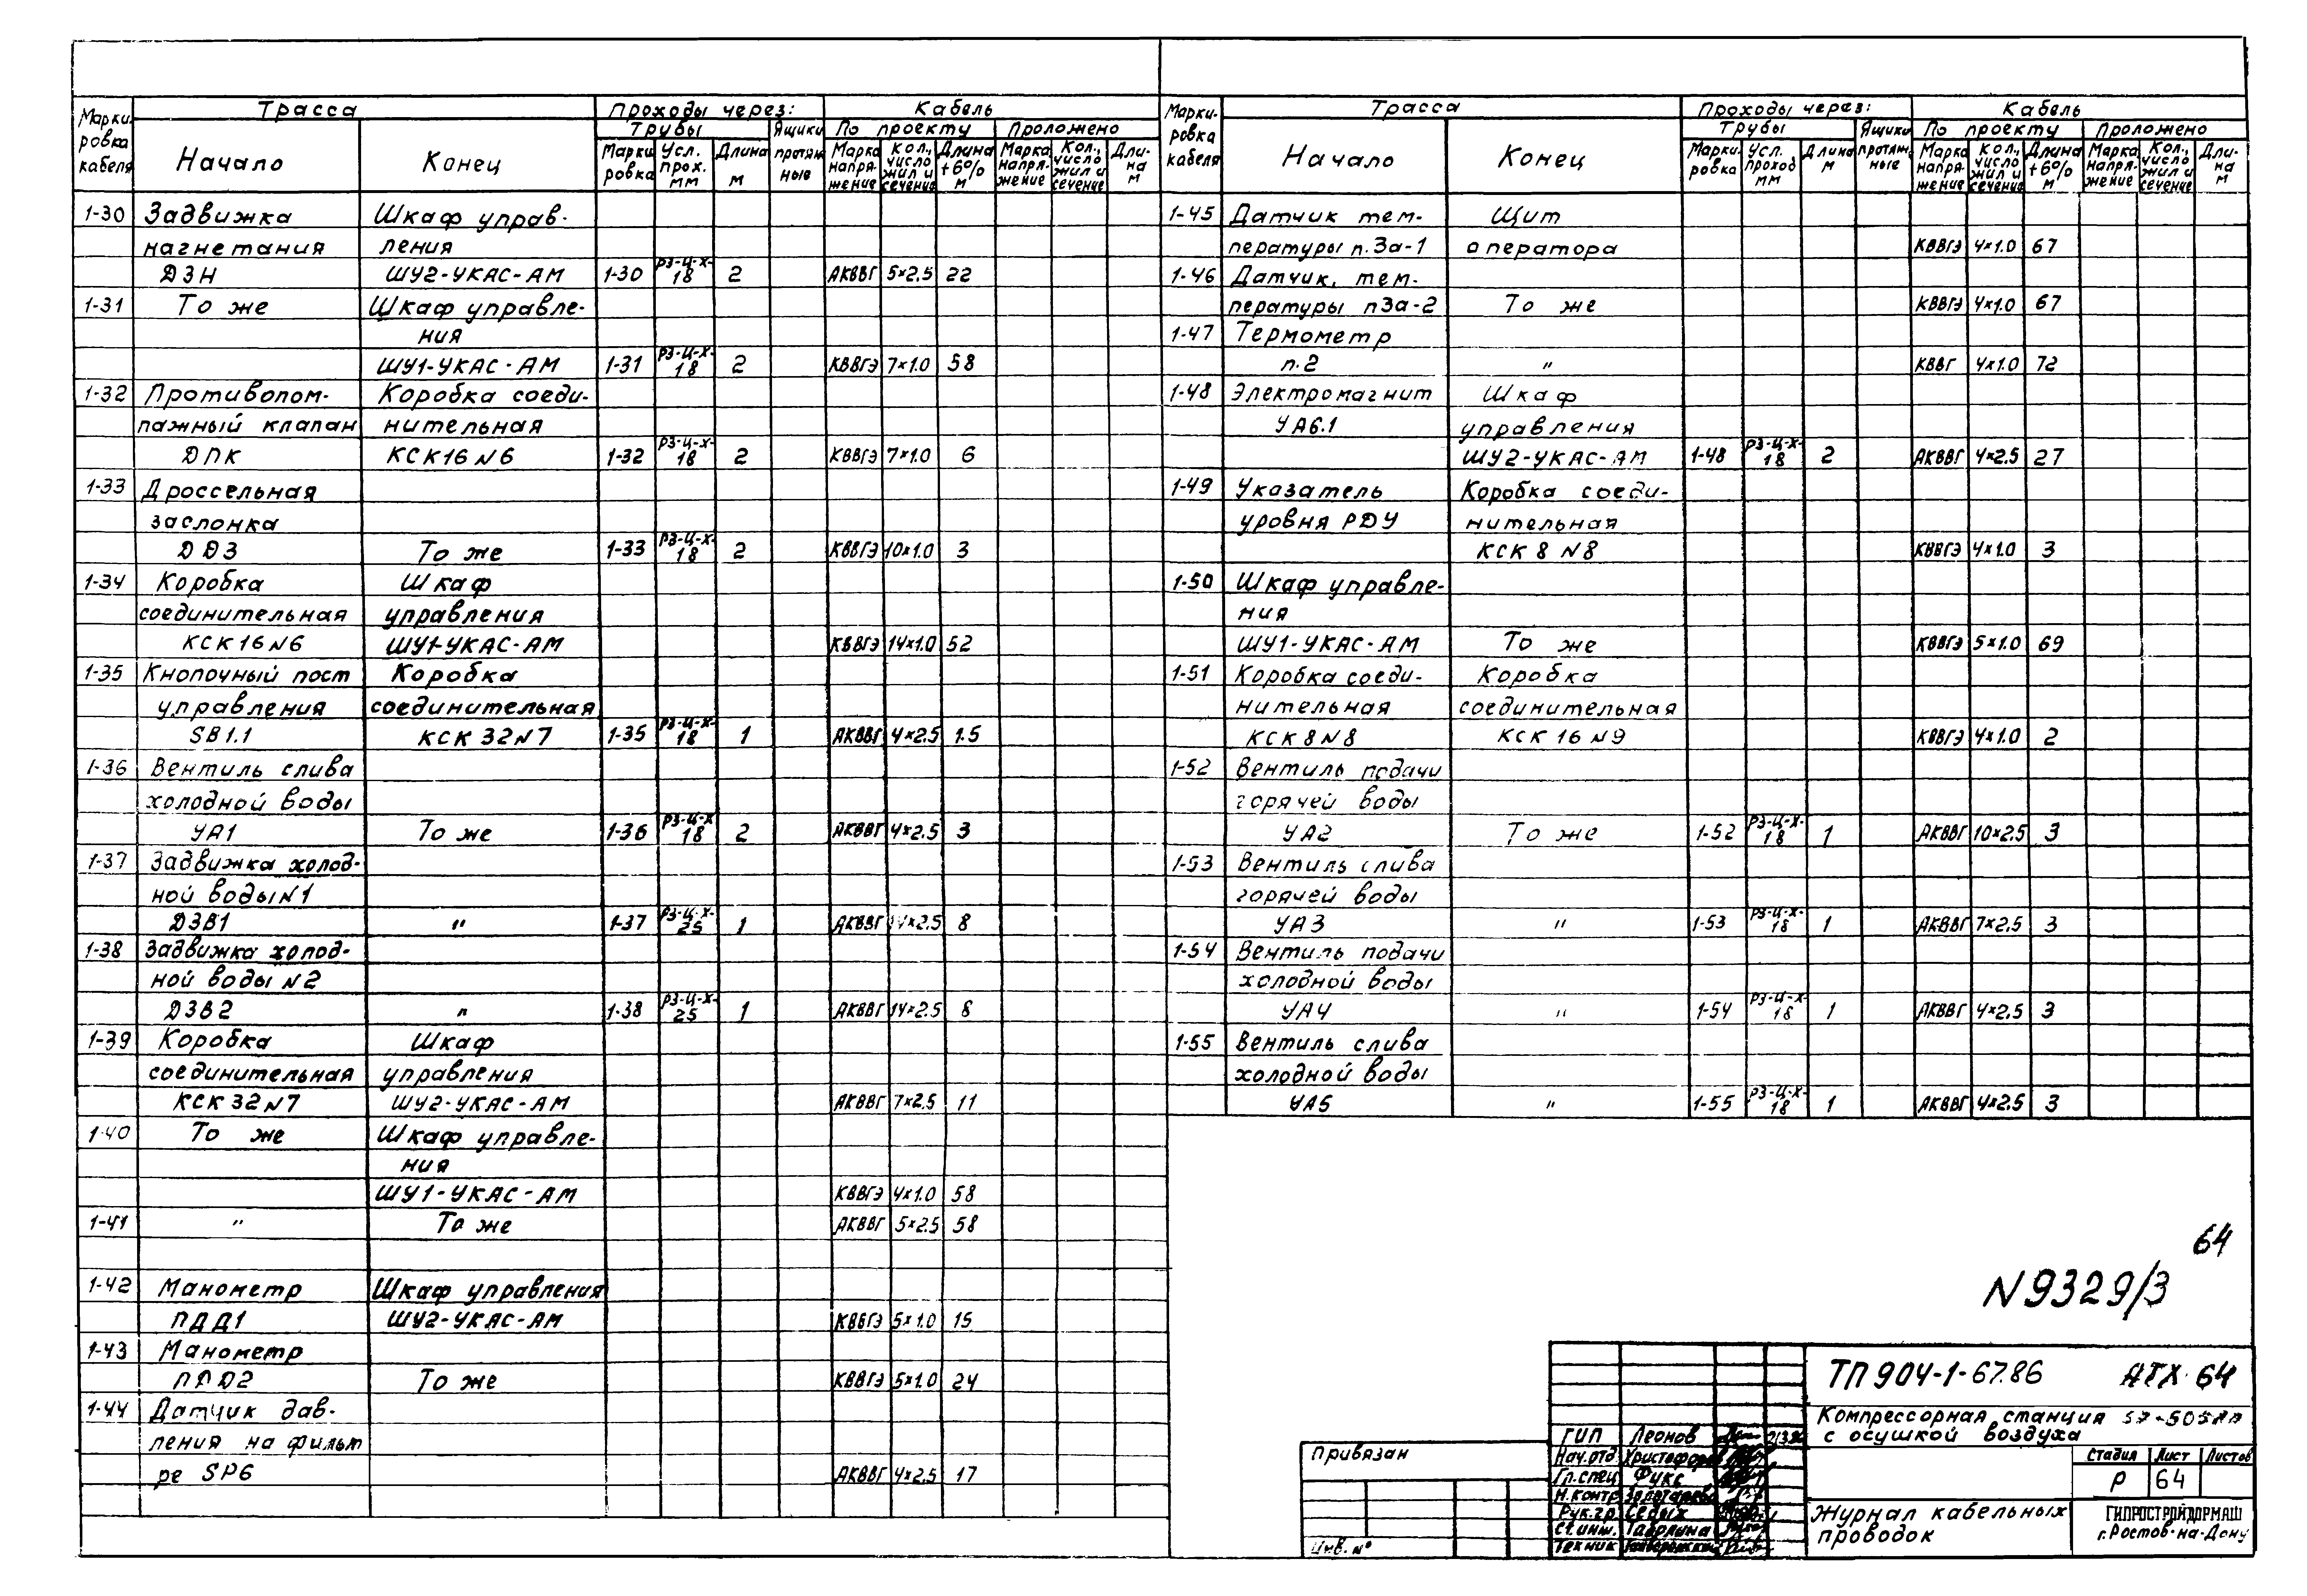 Марки- ровка кабеля | Трасса | Проходы через: | Кабель
Трубы | Ящики протяжные | По проекту | Проложено
Начало | Конец | Марки ровка | Усл. прох. мм | Длина м | Марка напря- жение | Кол., число жил и сечение | Длина +6% м | Марка напря- жение | Кол., число жил и сечение | Дли- на м
1-30 Задвижка Шкаф управ-
нагнетания ления
ДЗН ШУ2-УКАС-АМ 1-30 РЗ-Ц-Х-18 2 АКВВГ 5×2.5 22
1-31 То же Шкаф управле-
ния
ШУ1-УКАС-АМ 1-31 РЗ-Ц-Х-18 2 КВВГЭ 7×1.0 58
1-32 Противопом- Коробка соеди-
пажный клапан нительная
ДПК КСК16 N6 1-32 РЗ-Ц-Х-18 2 КВВГЭ 7×1.0 6
1-33 Дроссельная
заслонка
ДДЗ То же 1-33 РЗ-Ц-Х-18 2 КВВГЭ 10×1.0 3
1-34 Коробка Шкаф
соединительная управления
КСК16N6 ШУ1-УКАС-АМ КВВГЭ 14×1.0 52
1-35 Кнопочный пост Коробка
управления соединительная
SB1.1 КСК 32N7 1-35 РЗ-Ц-Х-18 1 АКВВГ 4×2.5 1.5
1-36 Вентиль слива
холодной воды
УА1 То же 1-36 РЗ-Ц-Х-18 2 АКВВГ 4×2.5 3
1-37 Задвижка холод-
ной воды N1
ДЗВ1 " 1-37 РЗ-Ц-Х-25 1 АКВВГ 14×2.5 8
1-38 Задвижка холод-
ной воды N2
ДЗВ2 " 1-38 РЗ-Ц-Х-25 1 АКВВГ 14×2.5 8
1-39 Коробка Шкаф
соединительная управления
КСК 32N7 ШУ2-УКАС-АМ АКВВГ 7×2.5 11
1-40 То же Шкаф управле-
ния
ШУ1-УКАС-АМ КВВГЭ 4×1.0 58
1-41 " То же АКВВГ 5×2.5 58
1-42 Манометр Шкаф управления
ПДД1 ШУ2-УКАС-АМ КВВГЭ 5×1.0 15
1-43 Манометр
ПДД2 То же КВВГЭ 5×1.0 24
1-44 Датчик дав-
ления на фильт
ре SP6 АКВВГ 4×2.5 17
Марки- ровка кабеля | Трасса | Проходы через: | Кабель
Трубы | Ящики протяж. ные | По проекту | Проложено
Начало | Конец | Марки. ровка | Усл. проход мм | Длина м | Марка напря- жение | Кол., число жил и сечение | Длина +6% м | Марка напря- жение | Кол., число жил и сечение | Дли- на м
1-45 Датчик тем- Щит
пературы п.3а-1 оператора КВВГЭ 4×1.0 67
1-46 Датчик, тем-
пературы п3а-2 То же КВВГЭ 4×1.0 67
1-47 Термометр
п.2 " КВВГ 4×1.0 72
1-48 Электромагнит Шкаф
УА6.1 управления
ШУ2-УКАС-АМ 1-48 РЗ-Ц-Х-18 2 АКВВГ 4×2.5 27
1-49 Указатель Коробка соеди-
уровня РДУ нительная
КСК 8 N8 КВВГЭ 4×1.0 3
1-50 Шкаф управле-
ния
ШУ1-УКАС-АМ То же КВВГЭ 5×1.0 69
1-51 Коробка соеди- Коробка
нительная соединительная
КСК 8N8 КСК 16 N9 КВВГЭ 4×1.0 2
1-52 Вентиль подачи
горячей воды
УА2 То же 1-52 РЗ-Ц-Х-18 1 АКВВГ 10×2.5 3
1-53 Вентиль слива
горячей воды
УА3 " 1-53 РЗ-Ц-Х-18 1 АКВВГ 7×2.5 3
1-54 Вентиль подачи
холодной воды
УА4 " 1-54 РЗ-Ц-Х-18 1 АКВВГ 4×2.5 3
1-55 Вентиль слива
холодной воды
УА5 " 1-55 РЗ-Ц-Х-18 1 АКВВГ 4×2.5 3
64
N9329/3
ТП 904-1-67.86 АТХ 64
Компрессорная станция
с осушкой воздуха
Стадия Лист Листов
Р 64
Журнал кабельных
проводок
ГИПРОСТРОЙДОРМАШ
г.Ростов-на-Дону
Привязан
Инв. №
ГИП Леонов
Нач.отд Христофоров
Гл.спец Фукс
Н.контр Золотарева
Рук.гр. Седых
Ст.инж.
Техник